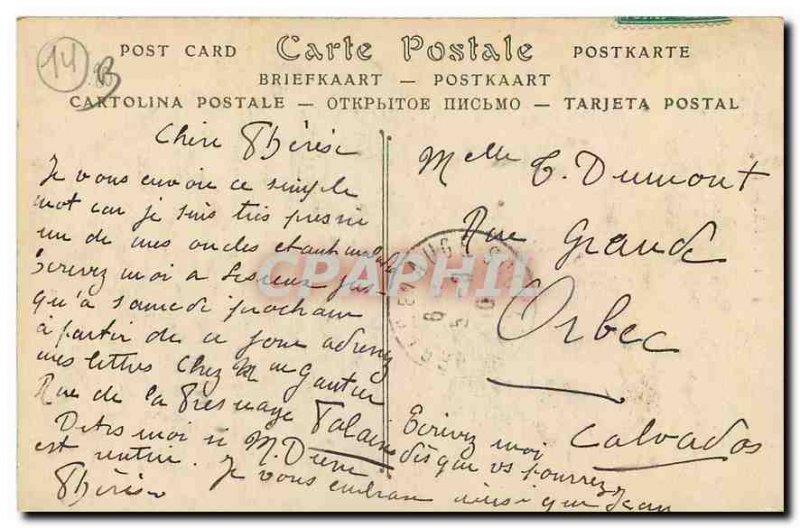 14
B
POST CARD Carte Postale POSTKARTE
BRIEFKAART — POSTKAART
CARTOLINA POSTALE — ОТКРЫТОЕ ПИСЬМО — TARJETA POSTAL
Chère Thérèse
Je vous envoie ce simple
mot car je suis très pressée
un de mes oncles étant malade
écrivez moi a Lisieux jus-
qu'à samedi prochain
à partir de ce jour adressez
mes lettres chez M Gautier
Rue de la Fresnaye Falaise
Dites moi si M.
est rentré. Je vous embrasse ainsi que Jean
Thérèse
Ecrivez moi
dès que vs pourrez
Melle T. Dumont
Rue Grande
Orbec
Calvados
CPAPHIL